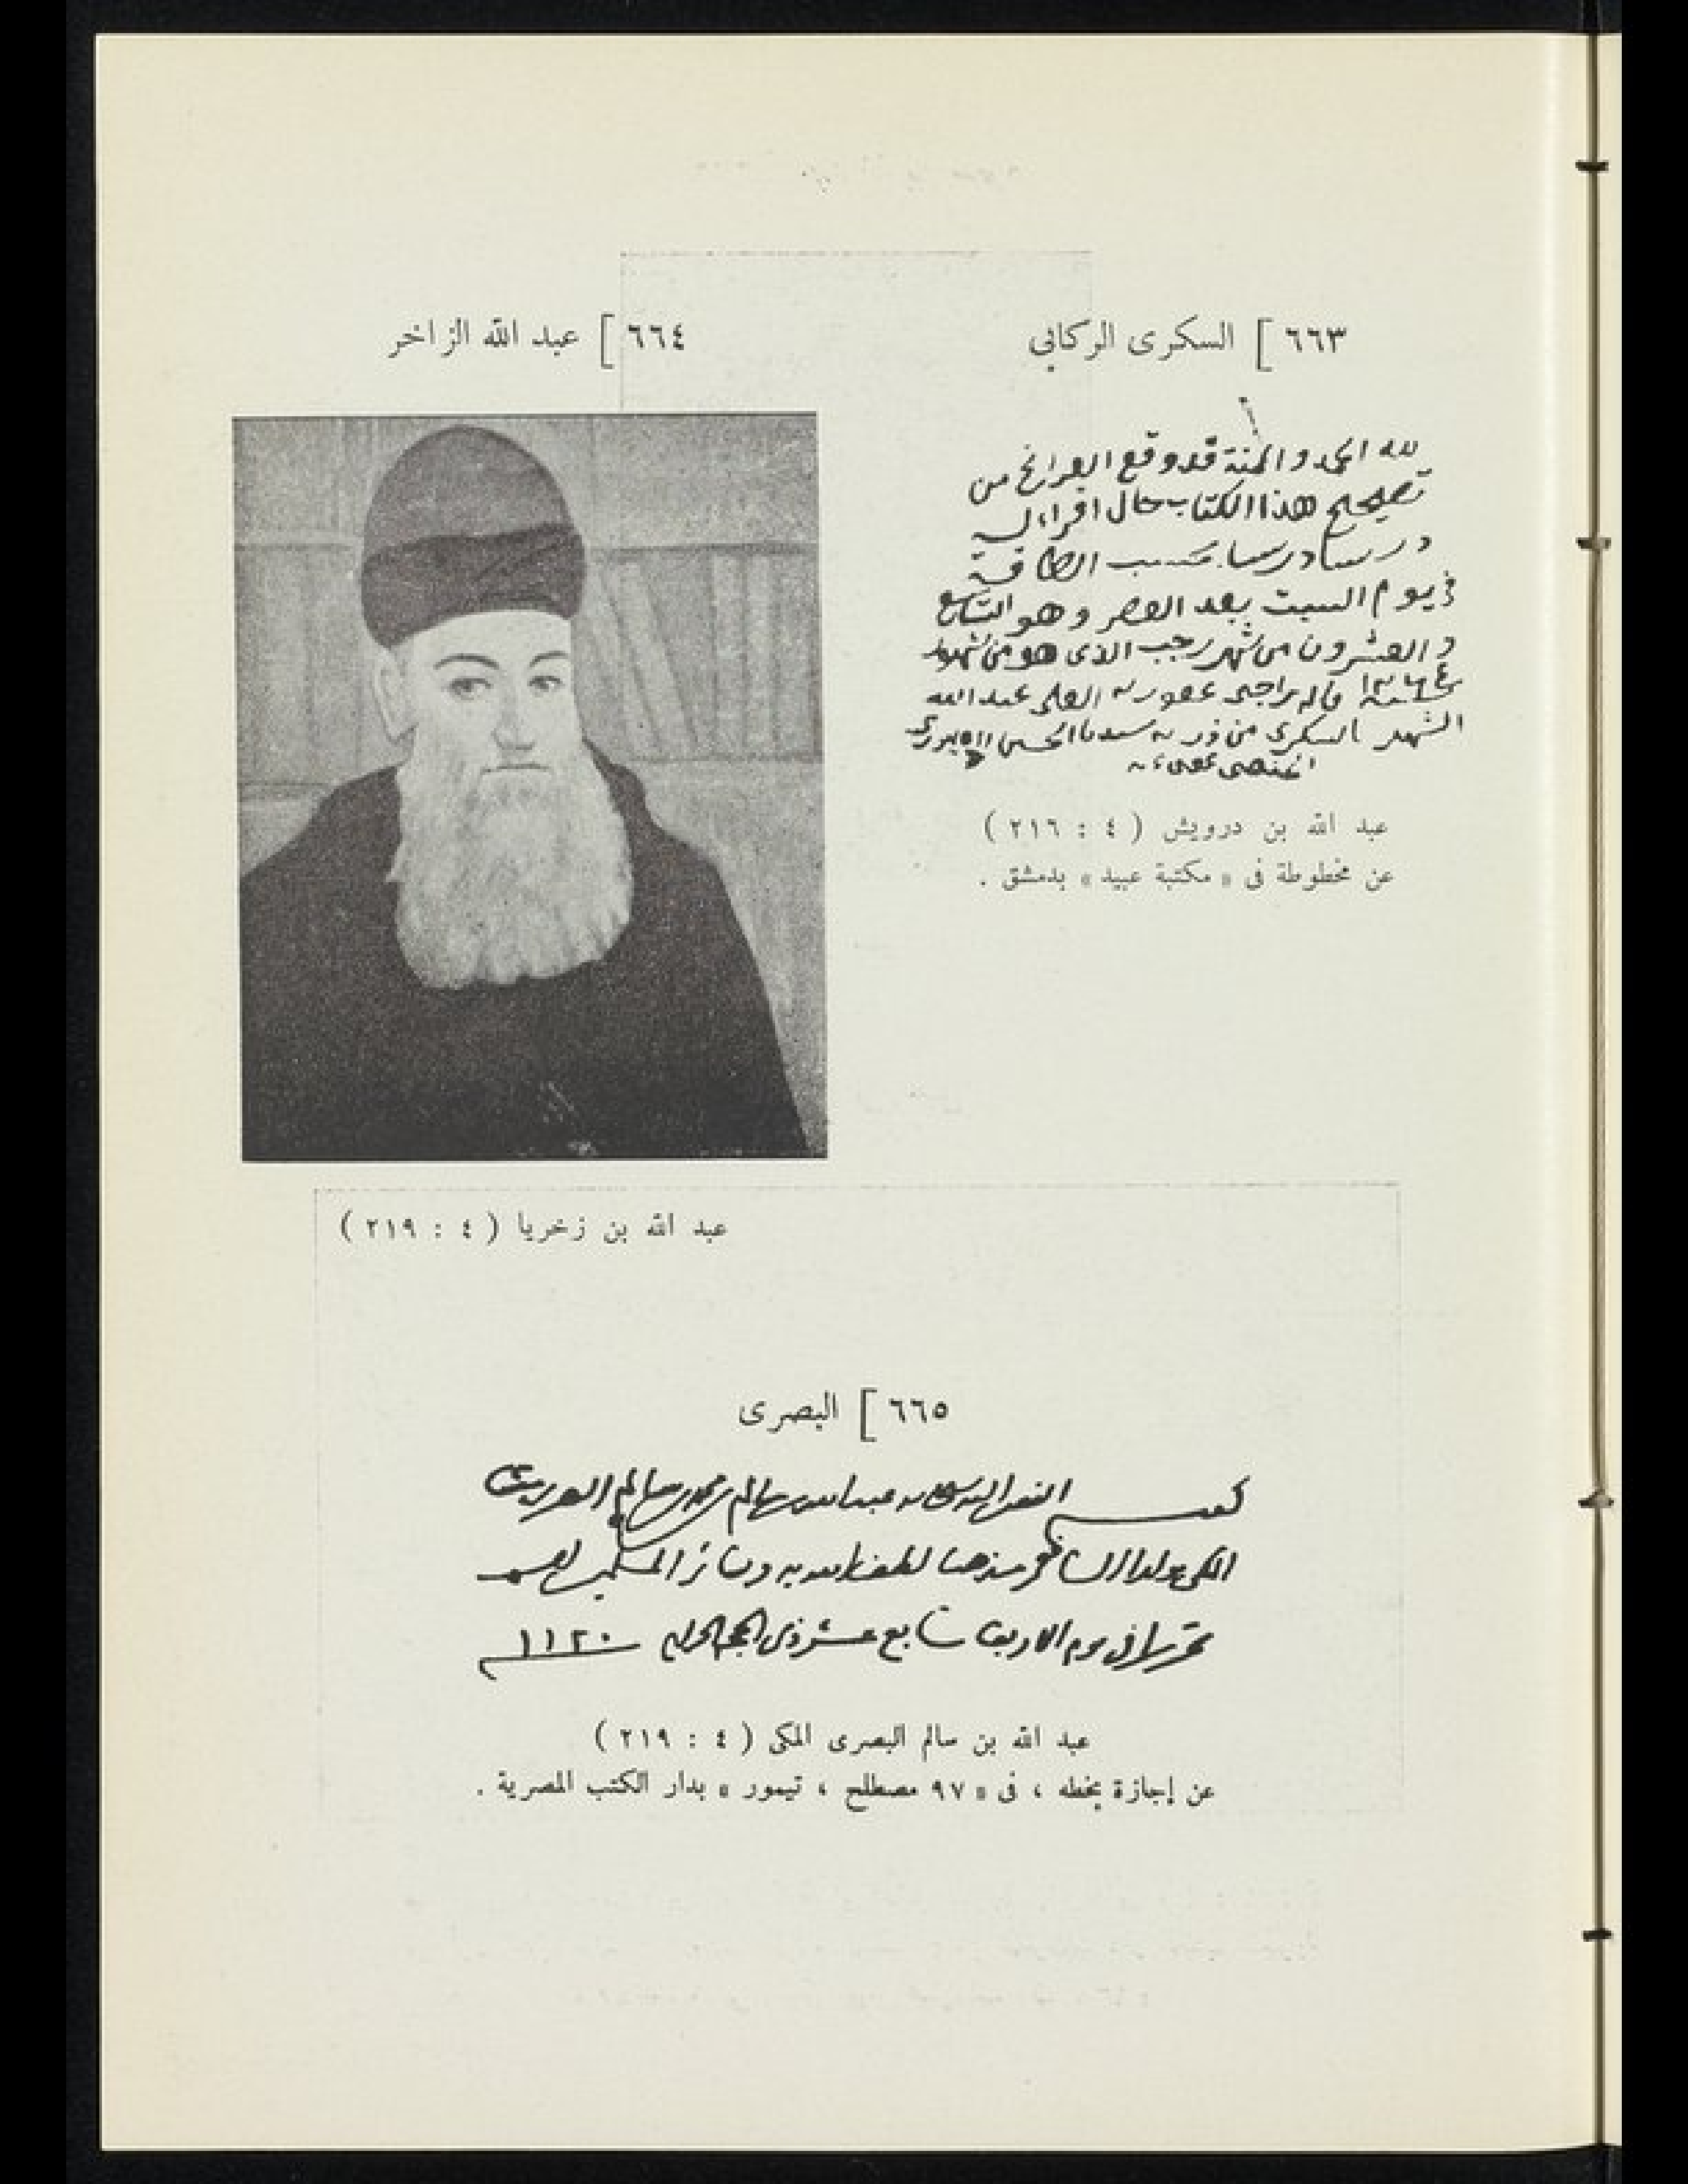 ٦٦٣ ] السكرى الركابي
لله الحمد والمنة قد وقع الفراغ من
تصحيح هذا الكتاب حال اقرائي له
درسا درسا بحسب الطاقة
في يوم السبت بعد العصر وهو التاسع
والعشرون من شهر رجب الذي هو من شهور
قاله راجي عفو ربه العلي عبد الله
الشهير بالسكري من ذرية سيدنا الحسين
الحنفي عفي عنه
عبد الله بن درويش ( ٤ : ٢١٦ )
عن مخطوطة فى « مكتبة عبيد » بدمشق .
٦٦٤ ] عبد الله الزاخر
عبد الله بن زخريا ( ٤ : ٢١٩ )
٦٦٥ ] البصرى
الفقير اليه سبحانه عبد الله بن سالم بن محمد بن سالم البصري
المكي مولدا الشافعي مذهبا لطف الله به وبسائر المسلمين
تحريرا في يوم الاربعا سابع عشر ذي الحجة الحرام ١١٢٠
عبد الله بن سالم البصرى المكى ( ٤ : ٢١٩ )
عن إجازة بخطه ، فى « ٩٧ مصطلح ، تيمور » بدار الكتب المصرية .